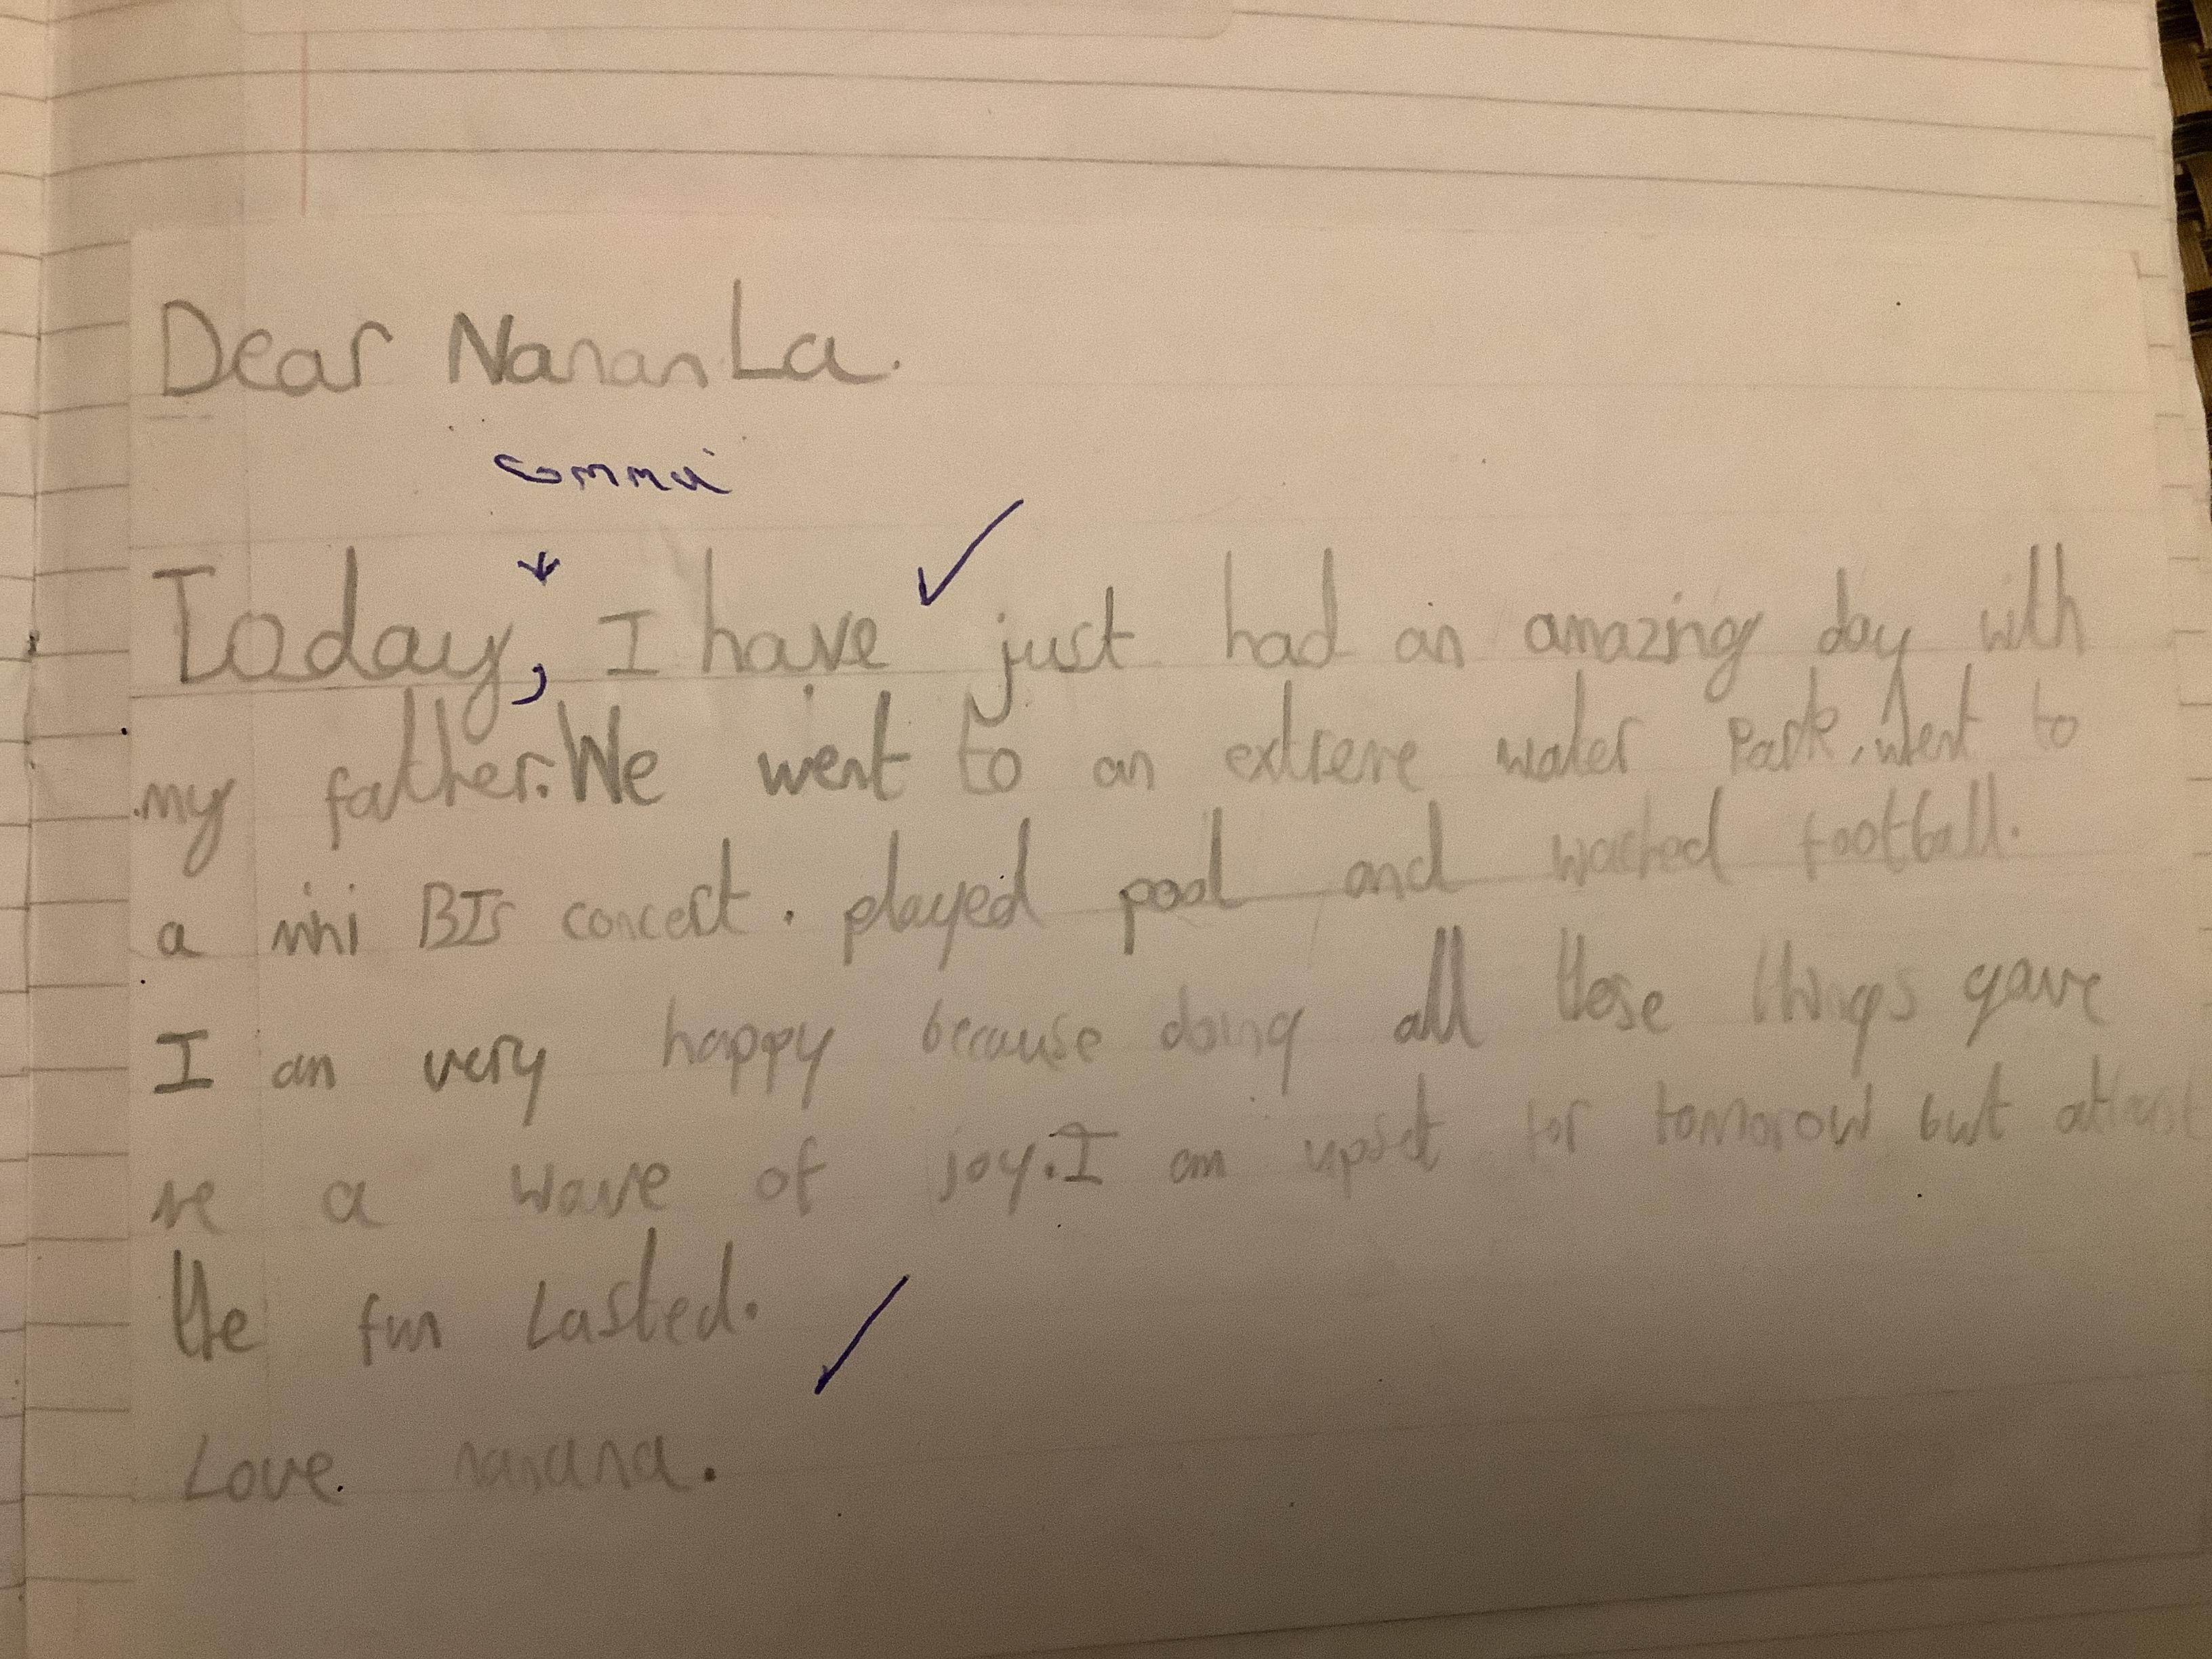 Dear NananLa.
comma
Today, I have just had an amazing day with
my father. We went to an extreme water Park, went to
a mini BTS concert. played pool and watched football.
I am very happy because doing all those things gave
me a wave of joy. I am upset for tomorow but atleast
the fun Lasted.
Love nanana.